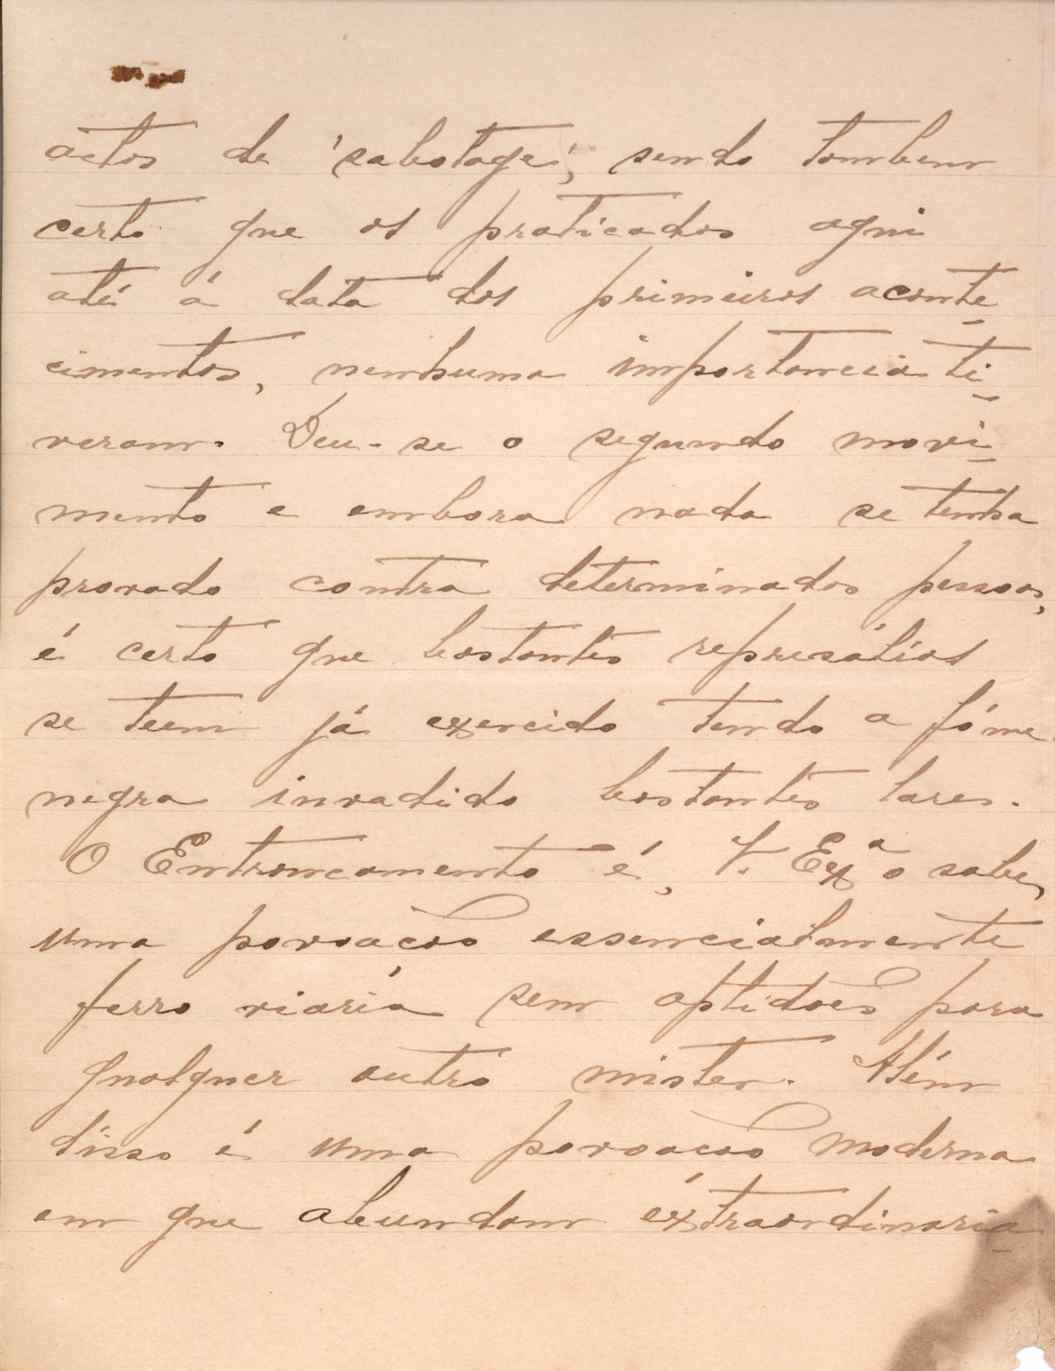 actos de 'sabotage', sendo tambem
certo que os praticados aqui
até á data dos primeiros aconte-
cimentos, nenhuma importancia ti-
veram. Deu-se o segundo movi-
mento e embora nada se tenha
provado contra determinadas pessoas,
é certo que bastantes represálias
se teem já exercido tendo a fóme
negra invadido bastantes lares.
O Entroncamento é, V. Exª o sabe,
uma povoação essencialmente
ferro viaria sem aptidões para
qualquer outro mister. Além
disso é uma povoação moderna
em que abundam extraordinaria-